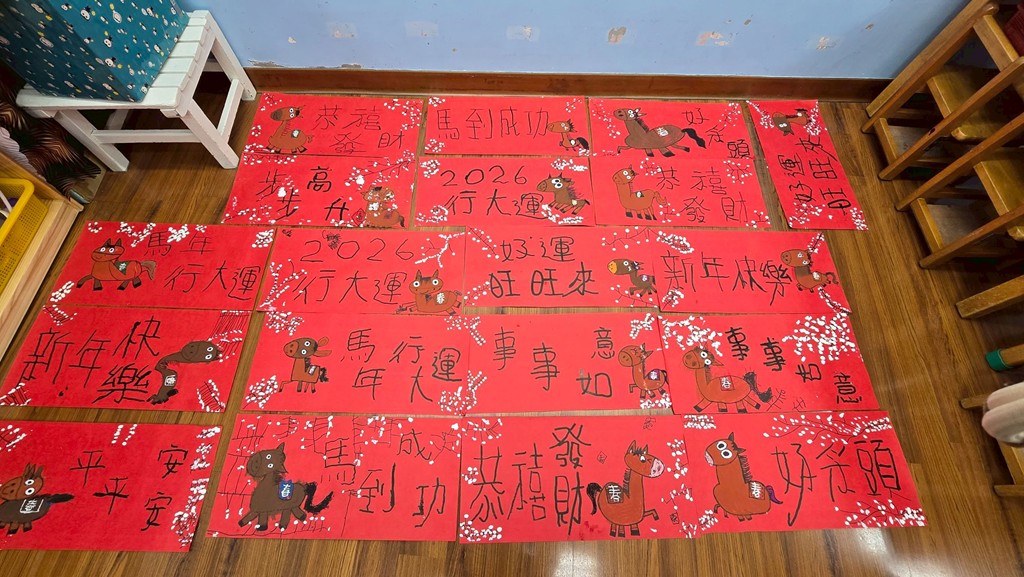 恭禧
發財
馬到成功
好彩頭
好運
步步高升
2026
行大運
恭禧
發財
馬年
行大運
2026
行大運
好運
旺旺來
新年快樂
新年快樂
馬年行大運
事事如意
事事如意
平平安安
馬到成功
恭禧發財
好彩頭
春
春
春
春